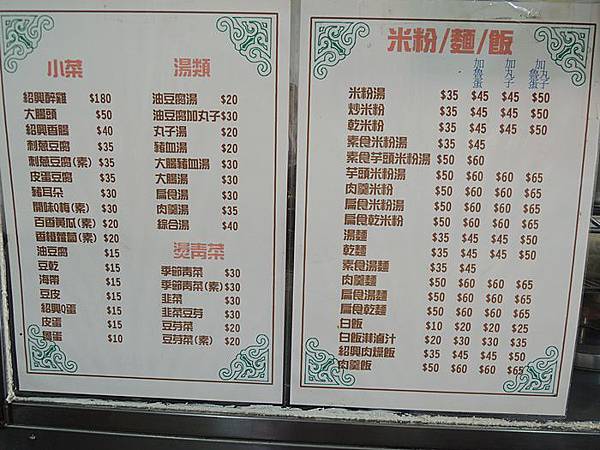 小菜
紹興醉雞 $180
大腸頭 $50
紹興香腸 $40
刺蔥豆腐 $35
刺蔥豆腐(素) $35
皮蛋豆腐 $35
豬耳朵 $30
開味Q梅(素) $30
百香黃瓜(素) $20
香椿蘿蔔(素) $20
油豆腐 $15
豆乾 $15
海帶 $15
豆皮 $15
紹興Q蛋 $15
皮蛋 $15
魯蛋 $10
湯類
油豆腐湯 $20
油豆腐加丸子 $30
丸子湯 $20
豬血湯 $20
大腸豬血湯 $30
大腸湯 $30
扁食湯 $30
肉羹湯 $35
綜合湯 $40
燙青菜
季節青菜 $30
季節青菜(素) $30
韭菜 $30
韭菜豆芽 $30
豆芽菜 $20
豆芽菜(素) $20
米粉/麵/飯
加魯蛋 加丸子 加丸子魯蛋
米粉湯 $35 $45 $45 $50
炒米粉 $35 $45 $45 $50
乾米粉 $35 $45 $45 $50
素食米粉湯 $35 $45
素食芋頭米粉湯 $50 $60
芋頭米粉湯 $50 $60 $60 $65
肉羹米粉 $50 $60 $60 $65
扁食米粉湯 $50 $60 $60 $65
扁食乾米粉 $50 $60 $60 $65
湯麵 $35 $45 $45 $50
乾麵 $35 $45 $45 $50
素食湯麵 $35 $45
肉羹麵 $50 $60 $60 $65
扁食湯麵 $50 $60 $60 $65
扁食乾麵 $50 $60 $60 $65
白飯 $10 $20 $20 $25
白飯淋滷汁 $20 $30 $30 $35
紹興肉燥飯 $35 $45 $45 $50
肉羹飯 $50 $60 $60 $65